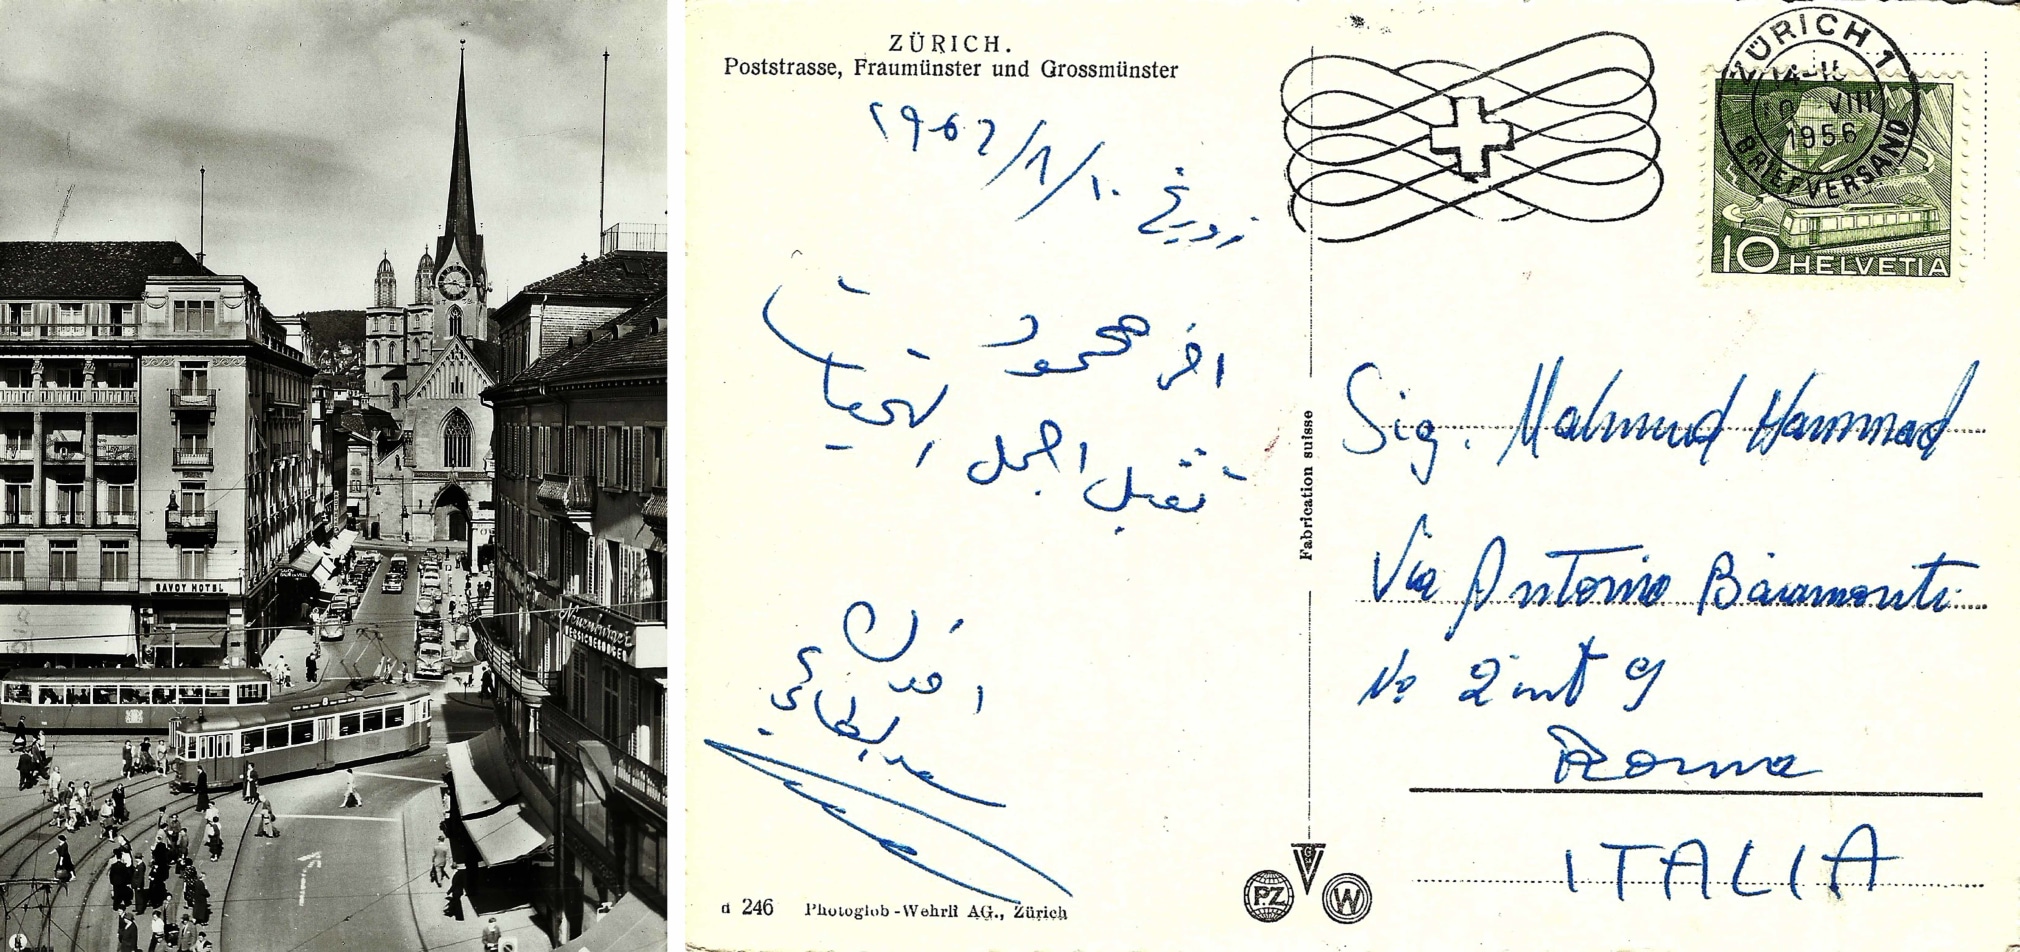 SAVOY HOTEL
Neuenburger
VERSICHERUNGEN
ZÜRICH.
Poststrasse, Fraumünster und Grossmünster
زوريخ ١٠/٨/١٩٥٦
اخي محمود
تقبل اجمل التحيات
اخوك
d 246 Photoglob-Wehrli AG., Zürich
Fabrication suisse
PZ
G
V
W
ZÜRICH 1
10 VIII
1956
BRIEFVERSAND
10 HELVETIA
Sig. Mahmud Hammad
Via Antonio Baiamonti
No 2 int 9
Roma
ITALIA